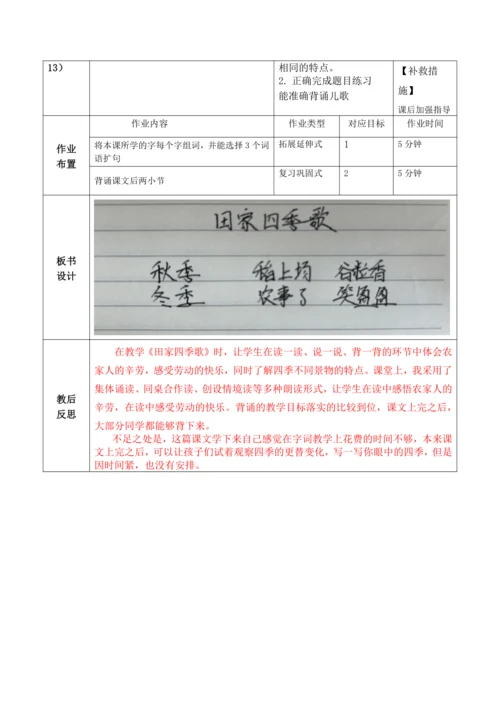 13）
相同的特点。
2. 正确完成题目练习
能准确背诵儿歌
【补救措
施】
课后加强指导
作业
布置
作业内容 作业类型 对应目标 作业时间
将本课所学的字每个字组词，并能选择 3 个词
语扩句
拓展延伸式 1 5 分钟
背诵课文后两小节 复习巩固式 2 5 分钟
板书
设计
田家四季歌
秋季 稻上场 谷粒香
冬季 农事了 笑盈盈
教后
反思
在教学《田家四季歌》时，让学生在读一读、说一说、背一背的环节中体会农
家人的辛劳，感受劳动的快乐，同时了解四季不同景物的特点。课堂上，我采用了
集体诵读、同桌合作读、创设情境读等多种朗读形式，让学生在读中感悟农家人的
辛劳，在读中感受劳动的快乐。背诵的教学目标落实的比较到位，课文上完之后，
大部分同学都能够背下来。
不足之处是，这篇课文学下来自己感觉在字词教学上花费的时间不够，本来课
文上完之后，可以让孩子们试着观察四季的更替变化，写一写你眼中的四季，但是
因时间紧，也没有安排。